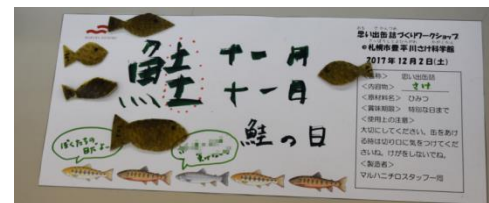 鮭
十一月
十一日
鮭の日
ぼくたちの
日だよー
思い出缶詰づくりワークショップ
@札幌市豊平川さけ科学館
2017年12月2日(土)
<名称> 思い出缶詰
<内容物> さけ
<原材料名> ひみつ
<賞味期限> 特別な日まで
<使用上の注意>
大切にしてください。缶をあけ
る時は切り口に気をつけてくだ
さいね。けがをしないでね。
<製造者>
マルハニチロスタッフ一同